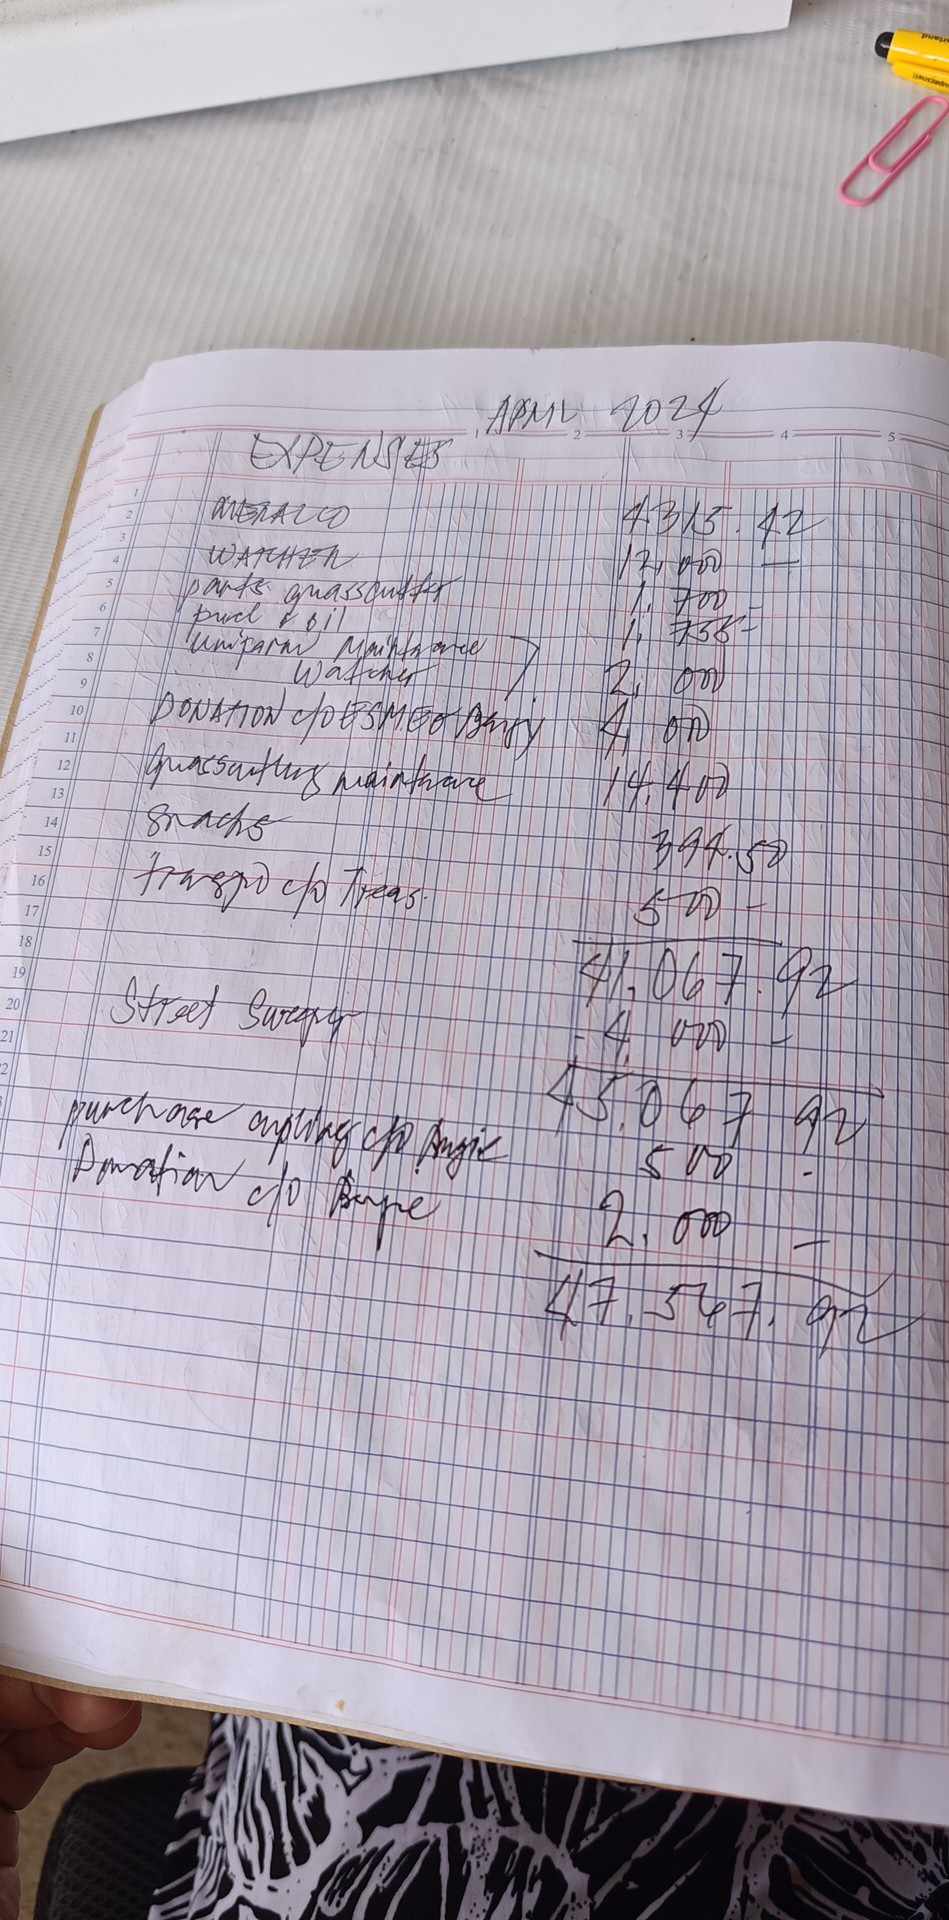 APRIL 2024
1 2 3 4 5
EXPENSES
1
2 MERALCO 4315.42
3
4 WATCHER 12,000 —
5 parts grasscutter 1,700 -
6 fuel & oil 1,758-
7 Uniform Maintenance
8 Watcher 2,000
9
10 DONATION c/o ESMEO Brgy 4,000
11
12 Grasscutting maintenance 14,400
13
14 Snacks 394.50
15
16 Transpo c/o Treas. 500 -
17
18
19 41,067.92
20 Street Sweeper 4,000 -
21
22 45,067.92
purchase coupling c/o Angie 500 -
Donation c/o 2,000 —
47,567.92